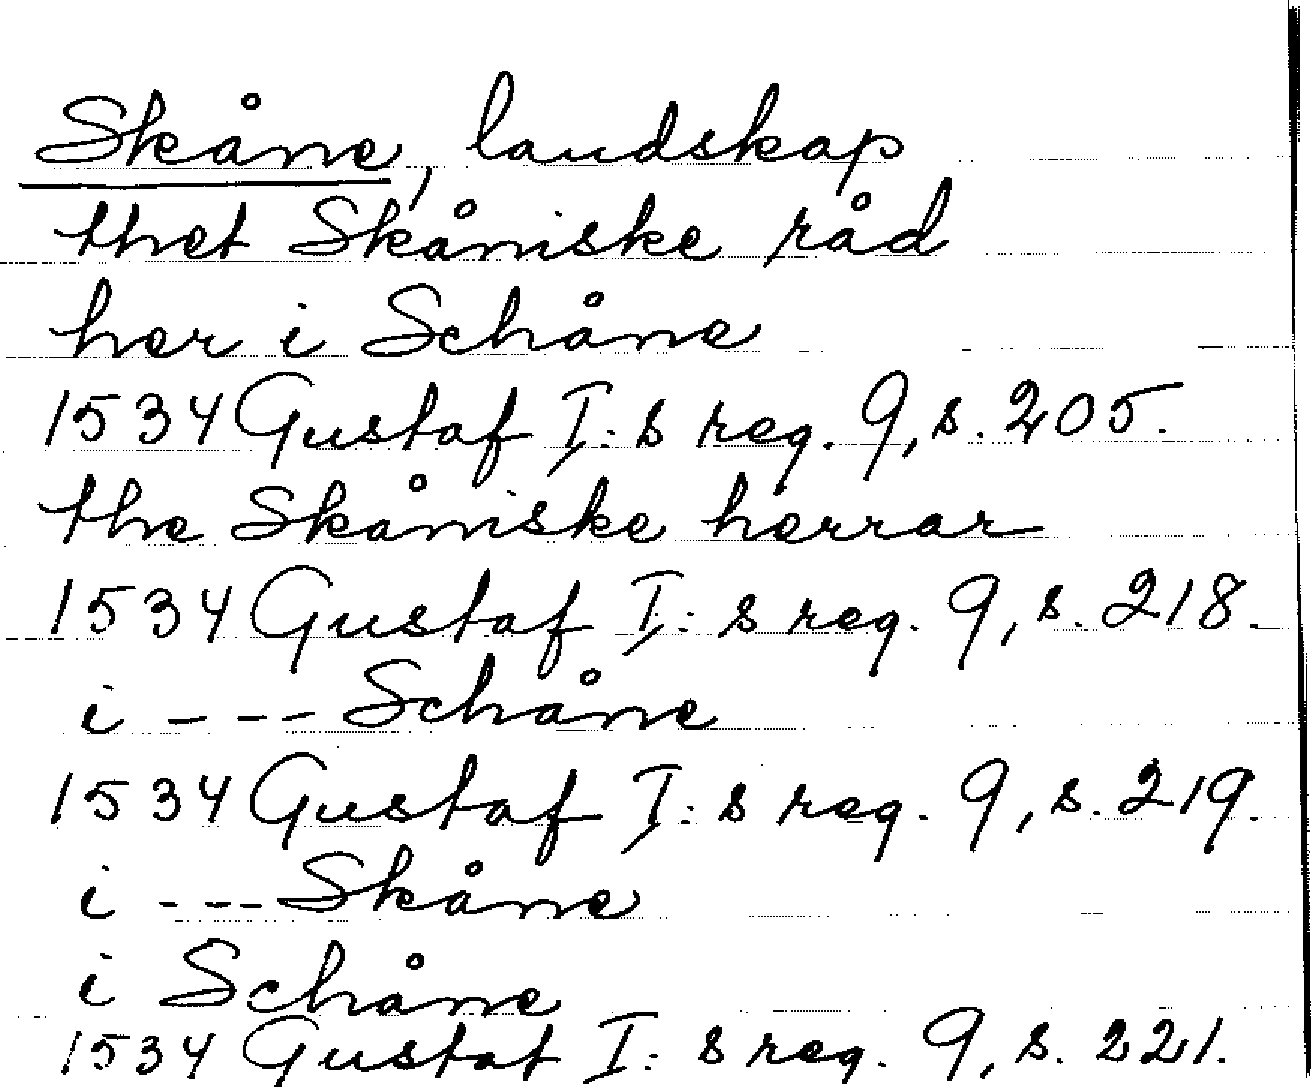 Skåne, landskap
thet Skåniske råd
her i Schåne
1534 Gustaf I:s reg. 9, s. 205.
the Skåniske herrar
1534 Gustaf I:s reg. 9, s. 218.
i --- Schåne
1534 Gustaf I:s reg. 9, s. 219.
i --- Skåne
i Schåne
1534 Gustaf I:s reg. 9, s. 221.